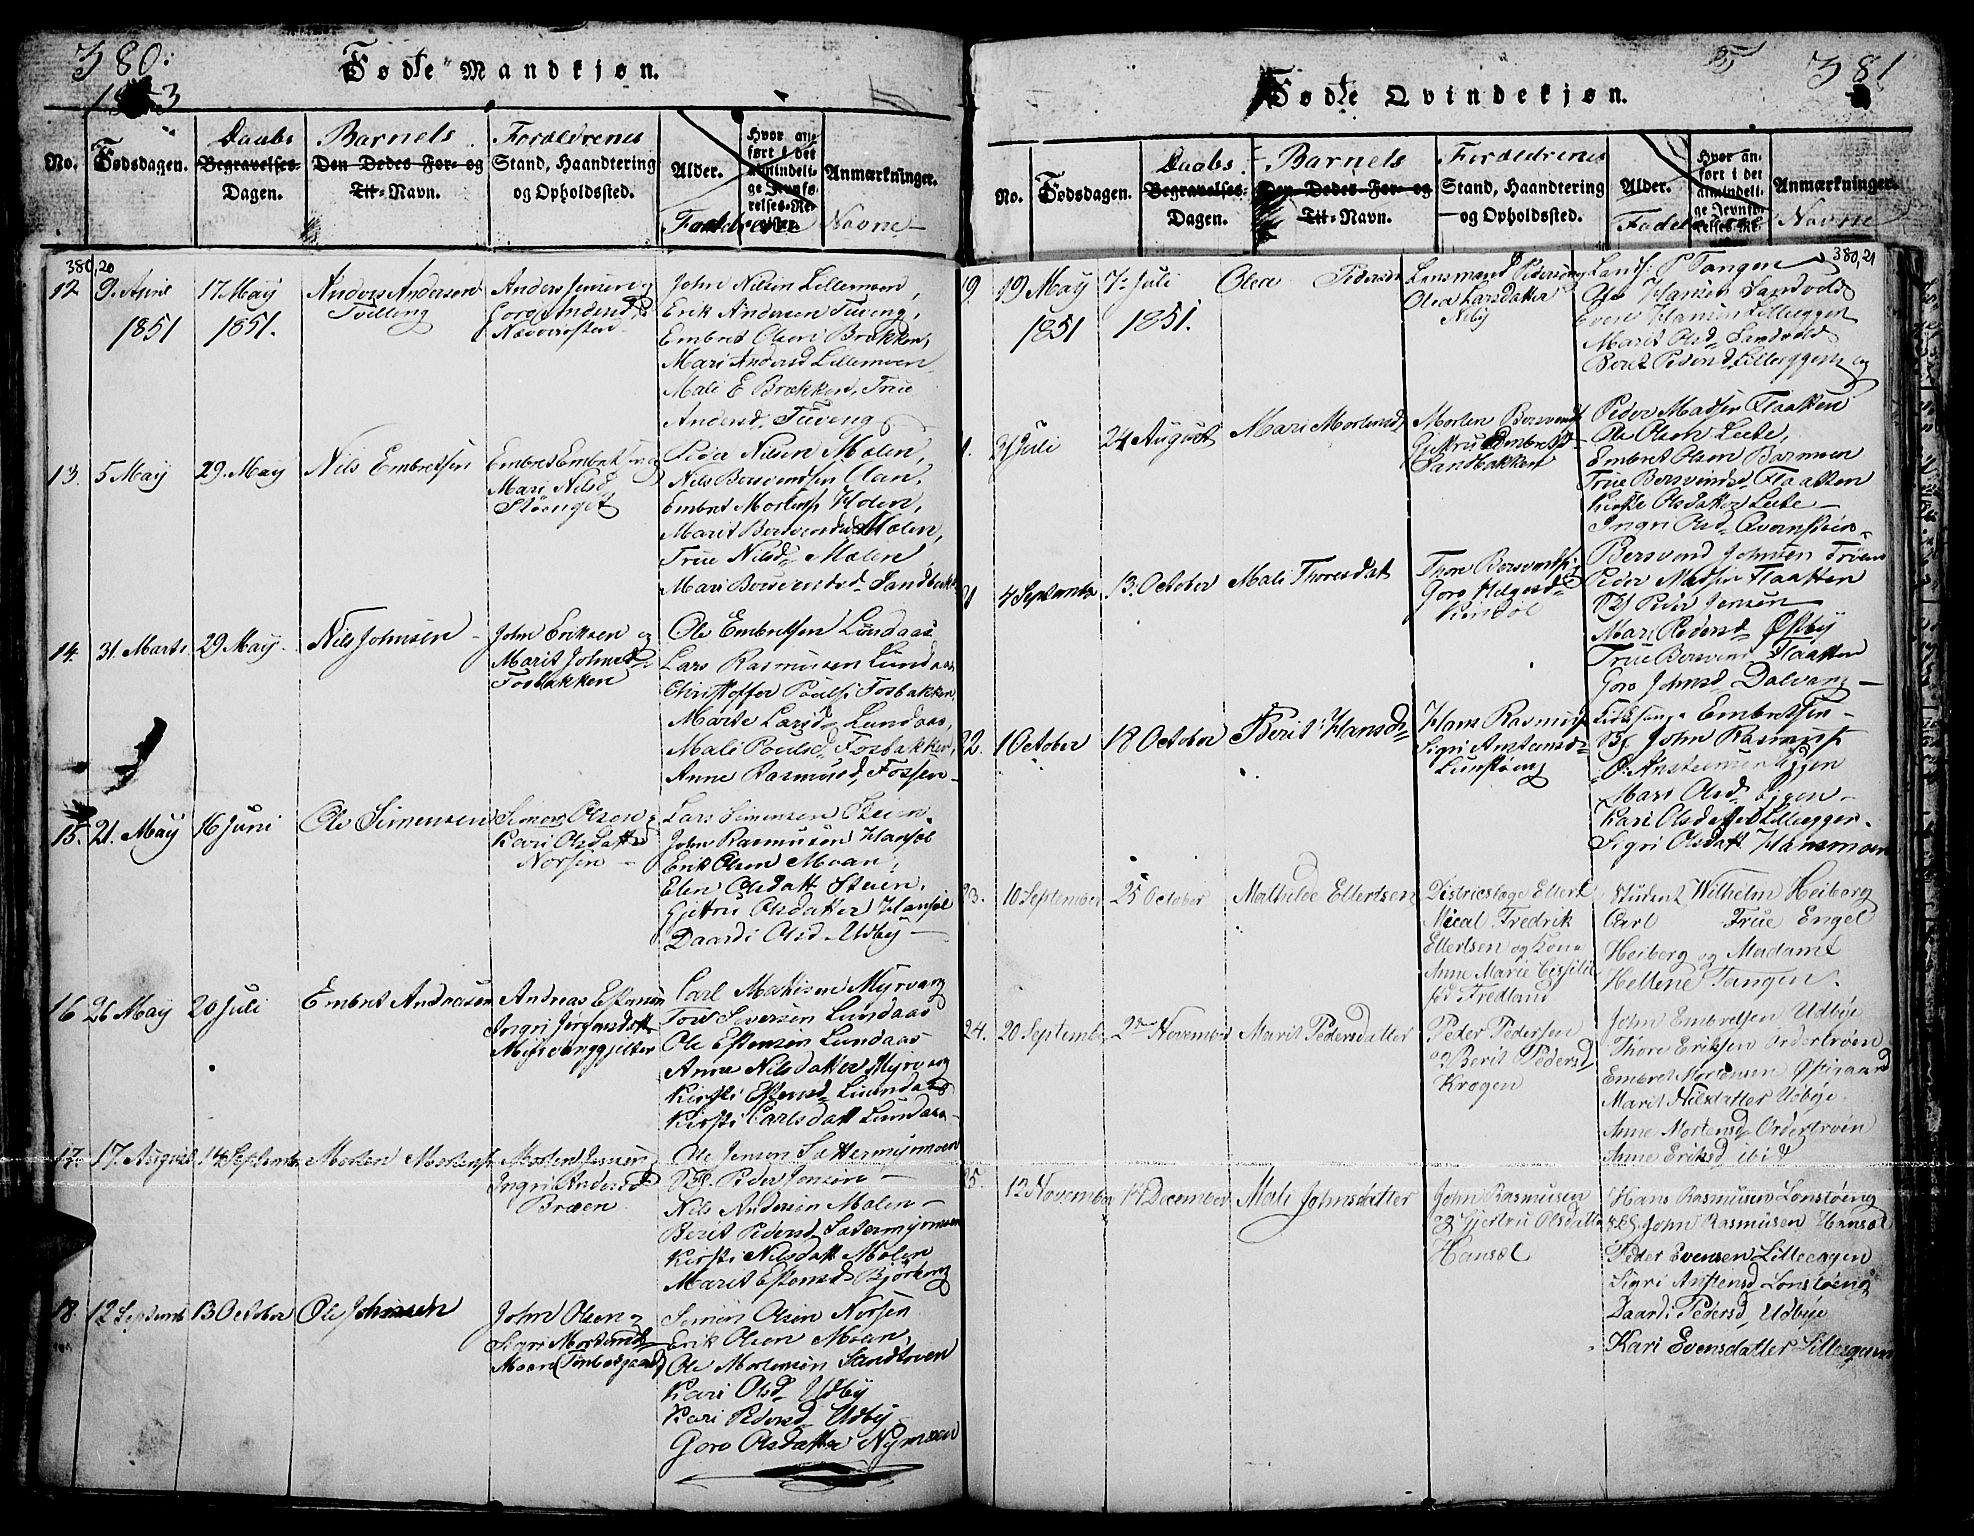 380.
Fødte Mandkjøn.
No.
Fødsdagen.
Daabs
Begravelses-
Dagen.
Barnets
Den Dødes For- og
Til-Navn.
Forældrenes
Stand, Haandtering
og Opholdssted.
Alder.
Hvor an-
ført i det
almindeli-
ge Jevnfø-
relses-Re-
Anmærkninger.
Faddernes Navne
380,20
12
9. April
1851
17 May
1851.
Anders Andersen
Tvilling
Anders Jensen og
Goro Andersd.
John Nilsen Lillemoen,
Erik Andersen Tuveng,
Embret Olsen Brækken,
Mari Andersd Lillemoen
Mali E Brækken, Frue
Andersd. Tuveng
13.
5 May
29. May
Nils Embretsen
Embret Embretsen og
Mari Nilsd
Støenget
Peder Nilsen Molen,
Nils Bersvendsen Oian,
Embret Mortens Holen,
Marit Bersvendsd Molen,
True Nilsd Molen
Mari Bersvendsd Sandbak
14.
31. Marts
29 May.
Nils Johnsen
John Eriksen og
Marit Johnsd
Fosbakken
Ole Embretsen Lundaas
Lars Rasmusen Lundaas
Christoffer Poulss Fosbakken
Marte Larsd Lundaas,
Mali Poulsd Fosbakken,
Anne Rasmusd, Fossen
15.
21. May
16 Juni
Ole Simensen
Simen Olsen og
Kari Olsdatter
Norsen
Lars Simensen Steien.
John Rasmusen Hansøl
Erik Olsen Moan,
Elen Olsdatt Steien,
Gjertru Olsdatter Hansøl
Daardi Olsd. Udby
16
26 May
20 Juli
Embret Andreasen
Andreas Estensen
Ingri Jørgensdatt
Carl Mathisen Myrvang
Tore Iversen Lundaas
Ole Estensen Lundaas
Anne Nilsdatter Myrvang
Kirsti Estensd Lundaas
Kirsti Carlsdatt Lundaas
17.
17. August
14 September
Morten Mortens
Morten Jensen
Ingri Andersd
Bræen
Ole Jensen Sattermyrmoen
Peder Jensen
Nils Andersen Molen
Berit Pedersd Satermyrmoen
Kirsti Nilsdatt Molen
Marit Estensd Bjørberg
18.
12 Septemb
13 October
Ole Johnsen
John Olsen og
Sigri Mortensd
Ole Mortensen Sandtrøen
Simen Olsen Norsen
Erik Olsen Moan,
Kari Olsd Udby
Kari Pedersd Udby
Goro Olsdatter Nymoen
381
Fødte Qvindekjøn.
No.
Fødsdagen.
Daabs
Begravelses-
Dagen.
Barnets
Den Dødes For- og
Til-Navn.
Forældrenes
Stand, Haandtering
og Opholdssted.
Alder.
Hvor an-
ført i det
almindeli-
ge Jevnfø-
relses-Re-
Anmærkninger.
Navne
380,21
19.
19 May
1851
7. Juli
1851.
Olea Pedersen
Lensmand Pedersen og
Olea Larsdatter
Neby
Lensm. P Tangen
Ole Hansen Sandvold
Even Hansen Lilleeggen
Marit Olsd Sandvold
Berit Pedersd Lilleeggen
Juli
24 August
Mari Mortensd
Morten Bersvends
Gjertru Embretsd
Sandbakken
Peder Madsen Flaatten
Ole Olsen Leete,
Embret Olsen Barmoen
True Bersvendsd Flaatten
Kirsti Olsdatter Leete
Ingri Olsd Qvernstøin
4 September
13. October
Mali Thoresdat
Thore Bersvends
Goro Helgesd
Bersvend Johnsen Trøen
Peder Madsen Flaatten
Peder Jensen
Mari Pedersd Østby
True Bersvend Flaatten
Goro Johnsd Dalvang
22.
1 October
18 October
Berit Hansd
Hans Rasmus
Sigri Anstensd
Lunstøeng
Embretsen
John Rasmus
Mari Olsd. Eggen
Kari Olsdatter Lilleeggen
Sigri Olsdatt Hansmoen
23.
10 September
25 October
Mathilde Ellertsen
Districtslæge Ellert
Mical Fredrik
Ellertsen og Kone
Anne Marie Cicilie
fød Fredland
Student Wilhelm Heiberg
Carl True Engel
Heiberg og Madame
Hellene Tangen.
24.
20 September
2den November
Marit Pedersdatter
Peder Pedersen
og Berit Pedersd
Krogen
John Embretsen Udbye
Thore Eriksen Ordertrøen
Embret Mortensen Østgaard
Marit Nilsdatter Udbye.
Anne Mortensd Ordertrøen
Anne Eriksd ibid
25.
12 November
14 December
Mali Johnsdatter
John Rasmusen
og Gjertru Olsdatter
Hansøl
Hans Rasmusen Lonstøeng
John Rasmusen Hansøl
Peder Evensen Lilleeggen
Sigri Anstensd Lonstøeng
Daardi Pedersd, Udbye
Kari Evensdatter Lilleeggen